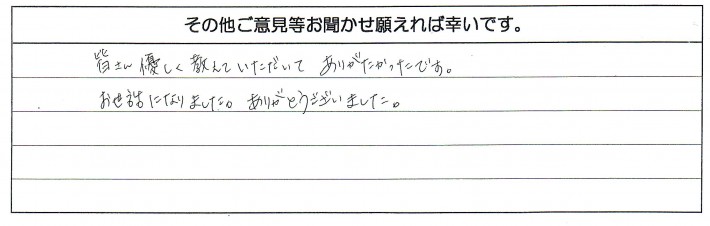 その他ご意見等お聞かせ願えれば幸いです。
皆さん優しく教えていただいて ありがたかったです。
お世話になりました。ありがとうございました。